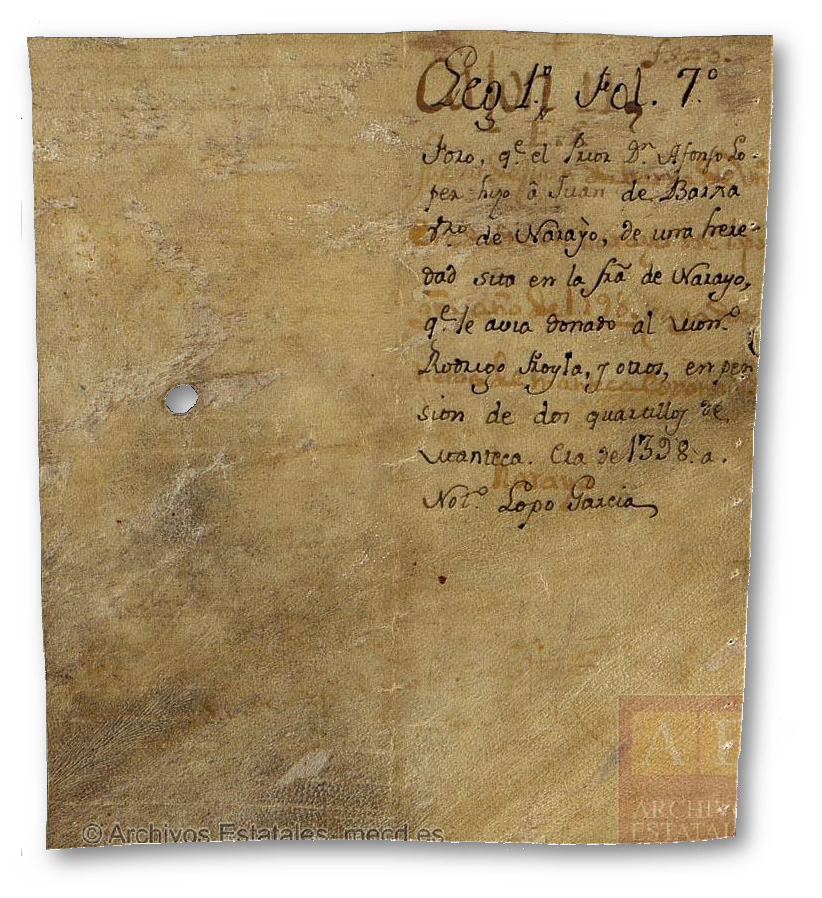 Leg 1.º Fol. 7.º
Foro, q.e el Prior D.n Afonso Lo-
pez hizo â Juan de Barra
v.no de Narayo, de una here-
dad sita en la fr.ª de Narayo,
q.e le avia donado al Mon.º
Rodrigo Froyla, y otros, en pen
sion de dos quartillos de
Manteca. Era de 1398. a.
Not.º Lopo Garcia
© Archivos Estatales, mecd.es
ARCHIV
ESTATAL